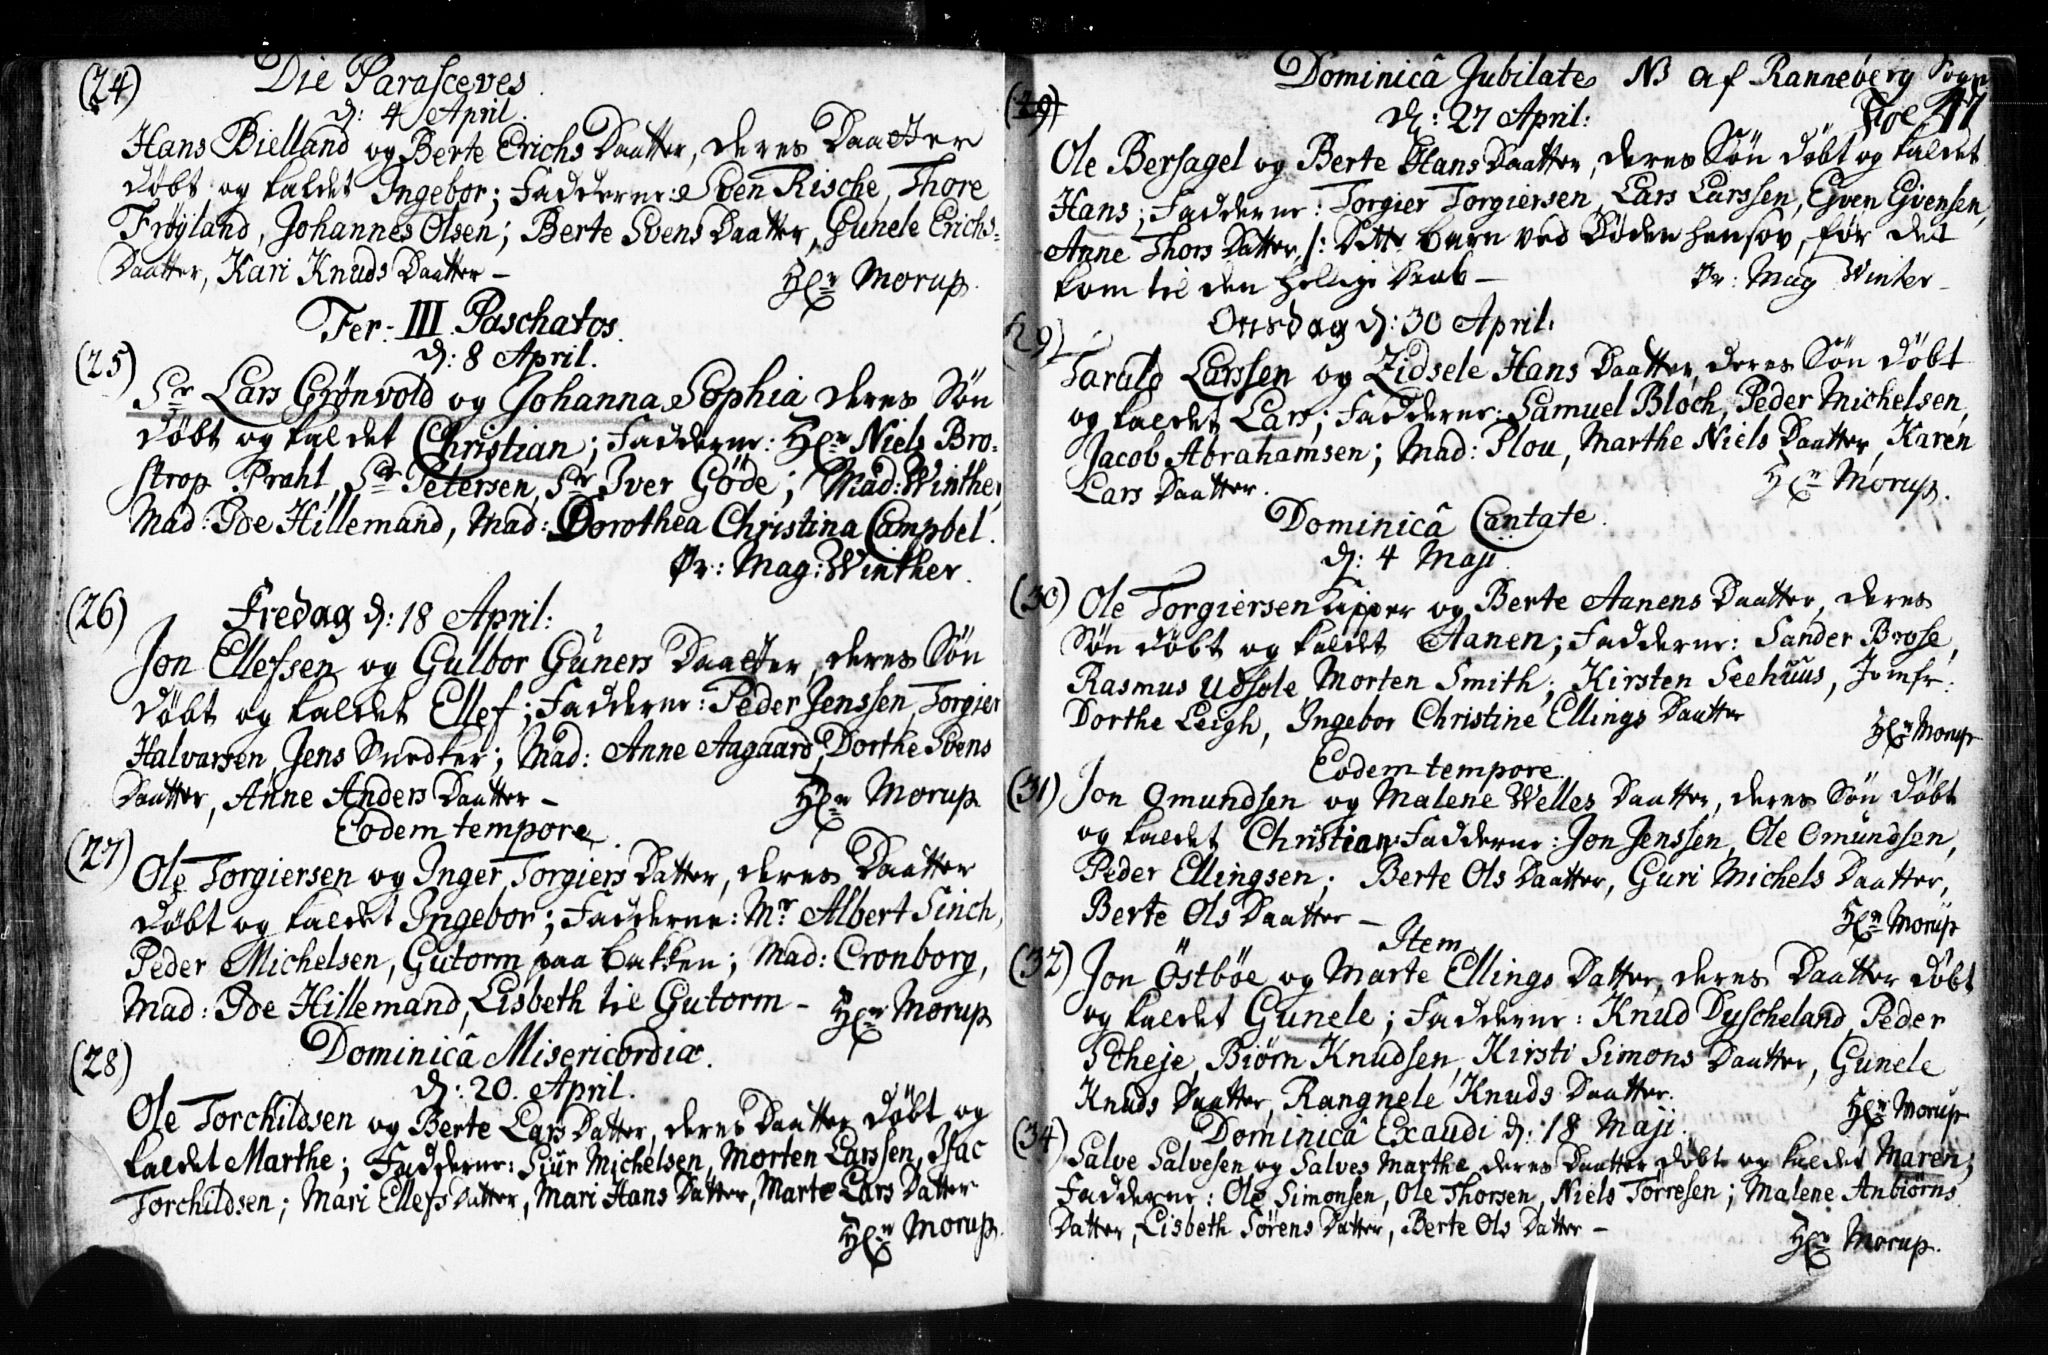 (24) Die Parasceves
d: 4 April.
Hans Bielland og Berte Erichs Daatter, deres Daatter
døbt og kaldet Ingebor; Fadderne: Sven Rische, Thore
Frøyland, Johannes Olsen; Berte Svens Daatter, Gunele Erichs-
Daatter, Kari Knuds Daatter – Hr Morup.
Fer: III. Paschatos.
(25) d: 8 April.
Sr Lars Grønvold og Johanna Sophia deres Søn
døbt og kaldet Christian; Fadderne: Hr Niels Bro-
strop Prahl, Sr Petersen, Sr Iver Göde; Mad: Winther,
Mad: Hillemand, Mad: Dorothea Christina Campbel.
Pr: Mag: Winther.
(26) Fredag d: 18 April:
Jon Ellefssen og Gulbor Guners Daatter, deres Søn
døbt og kaldet Ellef; Fadderne: Peder Jenssen, Torgier
Halvarsen, Jens Snedker; Mad: Anne Aagaard, Dorthe Svens
Daatter, Anne Anders Daatter – Hr Morup
Eodem tempore.
(27) Ole Torgiersen og Inger Torgiers Datter, deres Daatter
døbt og kaldet Ingebor; Fadderne: Mr Albert Sinch,
Peder Michelsen, Gutorm paa Bakken; Mad: Cronborg,
Mad: Hillemand, Lisbeth til Gutorm – Hr Morup
(28) Dominicâ Misericordiæ.
d: 20. April.
Ole Torchildsen og Berte Lars Datter, deres Daatter døbt og
kaldet Marthe; Fadderne: Siur Michelsen, Morten Larssen, Isac
Torchildsen; Mari Ellefs Datter, Mari Hans Datter, Marte Lars Datter
Hr Morup.
Dominicâ Jubilate NB af Ranneberg Sogn
(29) d: 27 April: 47
Ole Bersagel og Berte Hans Daatter, deres Søn døbt og kaldet
Hans; Fadderne: Torgier Torgiersen, Lars Larssen, Ejven Ejvensen,
Anne Thors Datter, /: Dette Barn ved Døden hensov, før det
kom til den hellige Daab – Pr: Mag Winter –
Onsdag d: 30 April:
29) Taruld Larssen og Zidsele Hans Daatter, deres Søn døbt
og kaldet Lars; Fadderne: Samuel Bloch, Peder Michelsen,
Jacob Abrahamsen; Mad: Plou, Marthe Niels Daatter, Karen
Lars Daatter. Hr Morup.
Dominicâ Cantate.
d: 4 Maji.
(30) Ole Torgiersen og Berte Aanens Daatter, deres
Søn døbt og kaldet Aanen; Fadderne: Sander Brose,
Rasmus Udsole, Morten Smith; Kirsten Seehuus, Jomfr:
Dorthe Leigh, Ingebor Christine Ellings Daatter
Hr Morup
Eodem tempore.
(31) Jon Omundsen og Malene Welles Daatter, deres Søn døbt
og kaldet Christian; Fadderne: Jon Jenssen, Ole Omundsen,
Peder Ellingsen; Berte Ols Daatter, Guri Michels Daatter,
Berte Ols Daatter – Hr Morup
Item
(32) Jon Östböe og Marte Ellings Datter, deres Daatter døbt
og kaldet Gunele; Fadderne: Knud Dyscheland, Peder
Stheje, Biørn Knudsen, Kirsti Simons Daatter, Gunele
Knuds Daatter, Rangnele Knuds Daatter. Hr Morup
(34) Dominicâ Exaudi d: 18 Maji.
Salve Salvesen og Salves Marthe, deres Daatter døbt og kaldet Maren;
Fadderne: Ole Simonsen, Ole Thorsen, Niels Torresen; Malene Anbiørns
Datter, Lisbeth Sörens Datter, Berte Ols Datter –
Hr Morup.